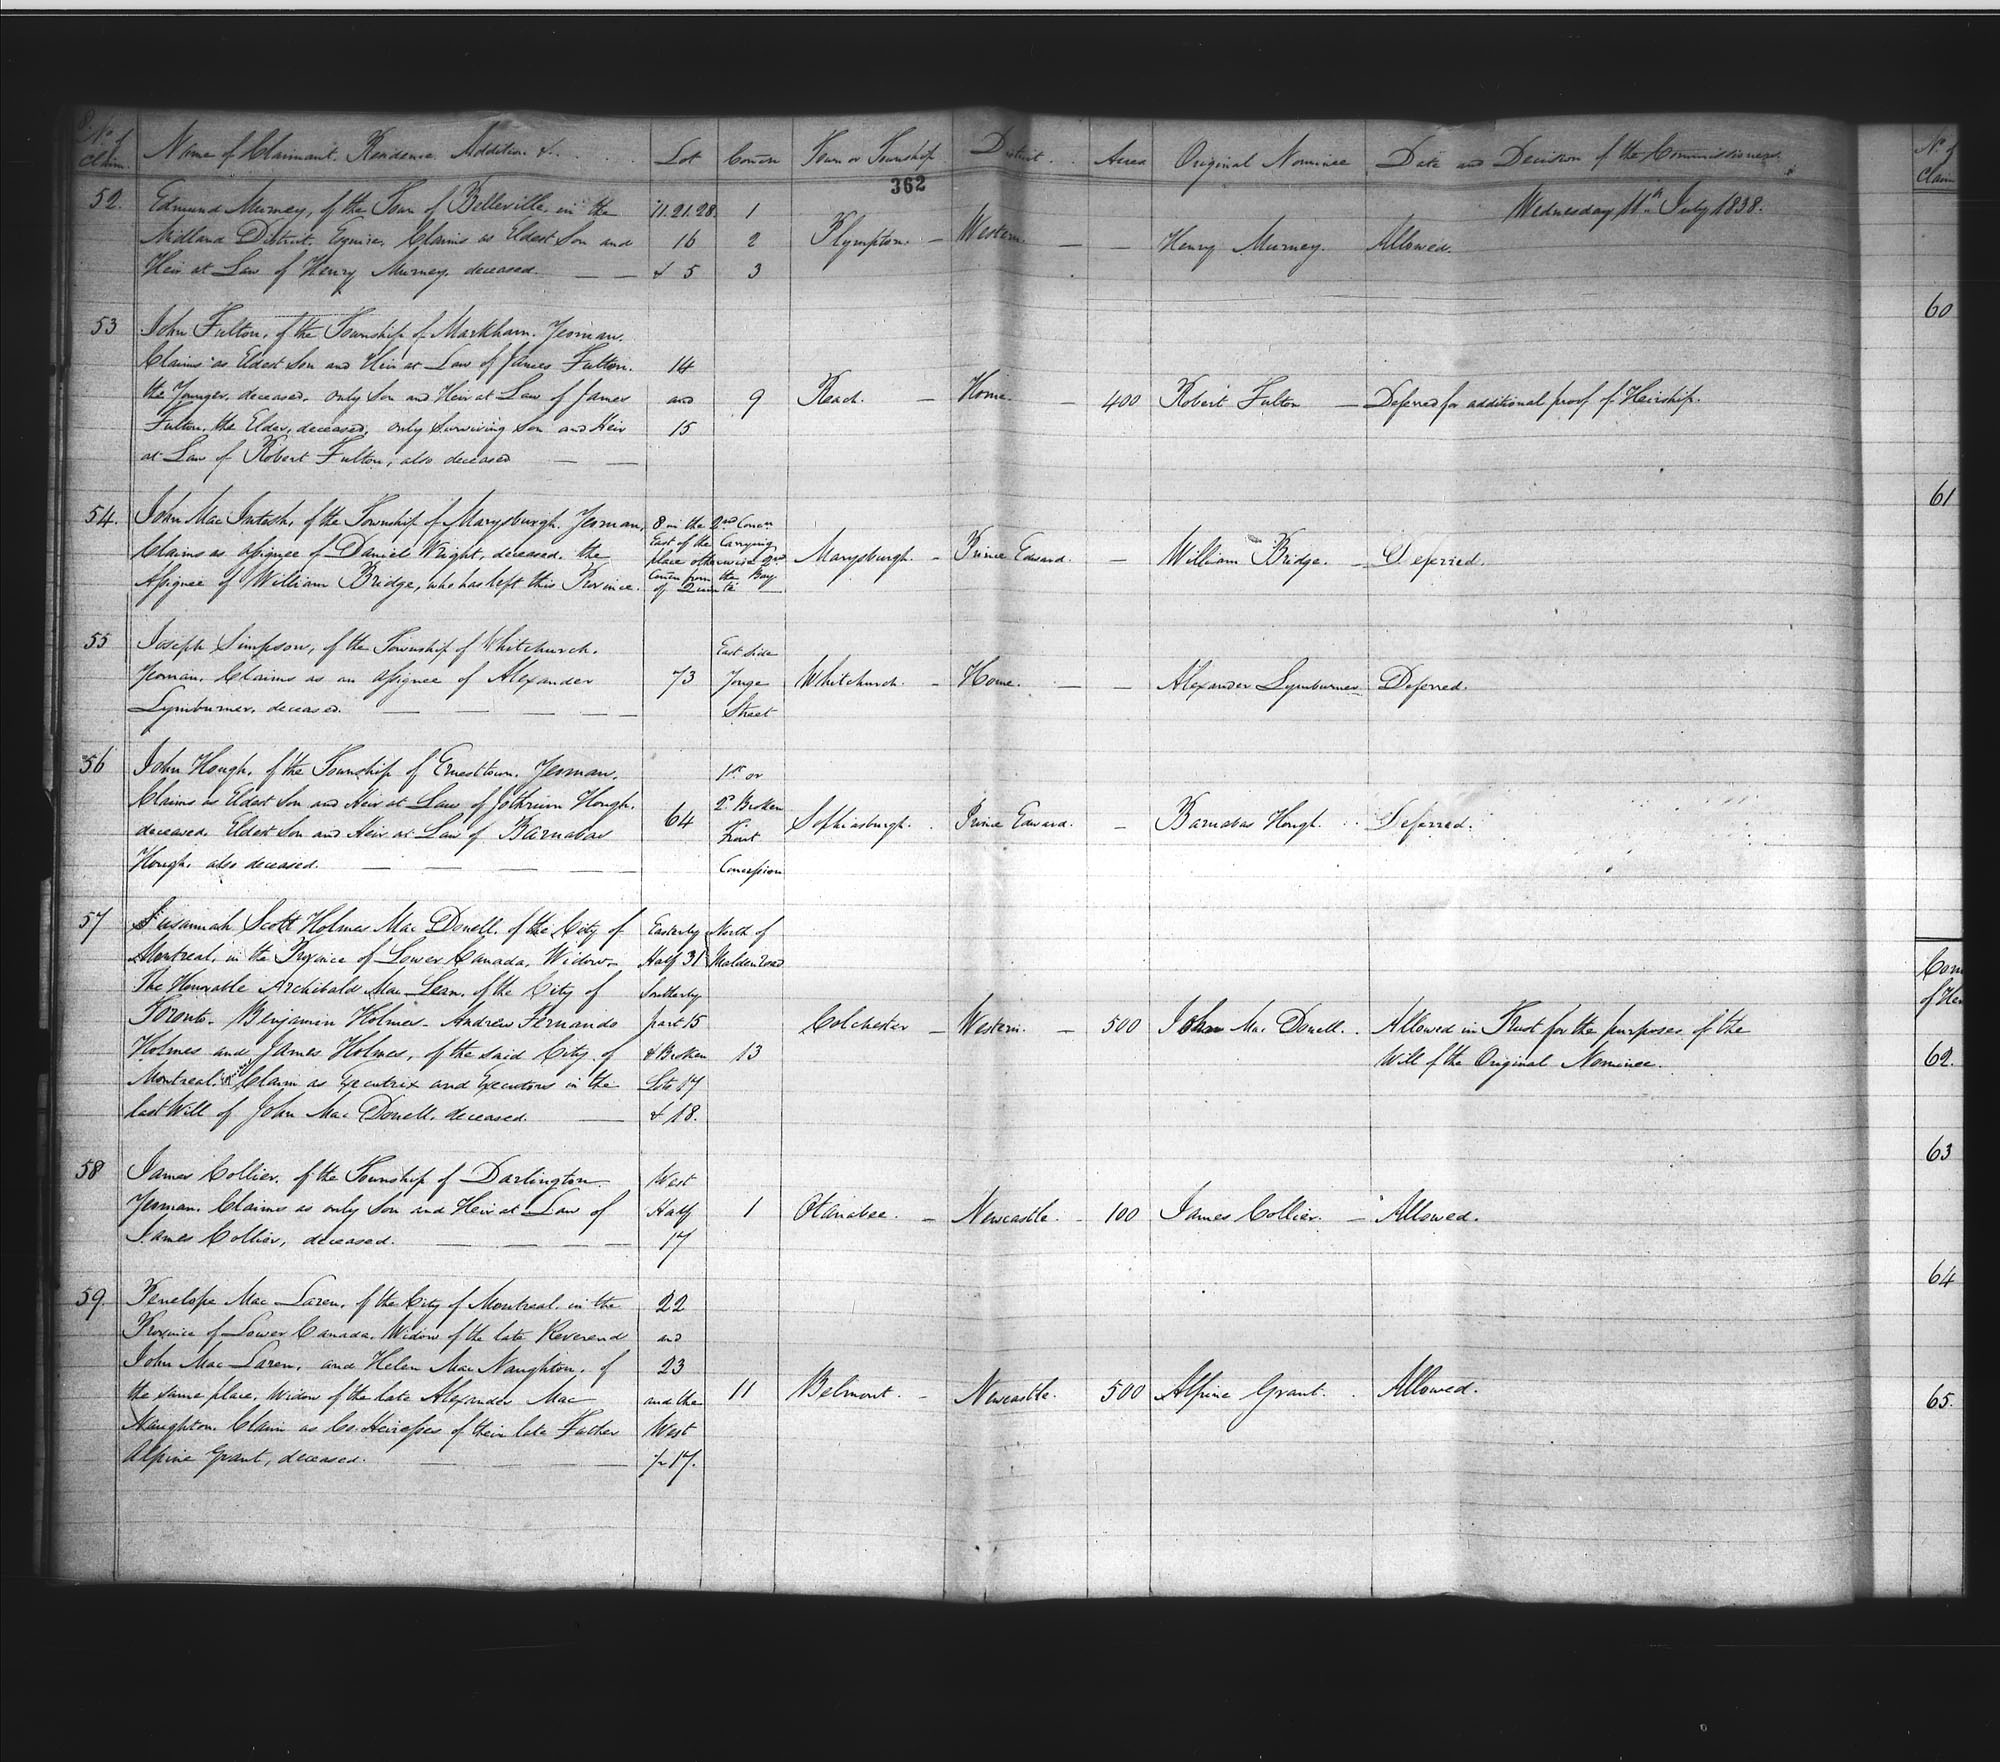 No. of Claim. Name of Claimant. Residence. Addition &c. Lot Concn Town or Township District Acres Original Nominee Date and Decision of the Commissioners.
362
Wednesday 11th July 1838.
52. Edmund Murney, of the Town of Belleville, in the 11.21.28. 1
Midland District. Esquire. Claims as Eldest Son and 16 2 Plympton. Western. Henry Murney. Allowed.
Heir at Law of Henry Murney, deceased. & 5 3
53 John Fulton, of the Township of Markham. Yeoman.
Claims as Eldest Son and Heir at Law of James Fulton. 14
the Younger, deceased, only Son and Heir at Law of James and 9 Reach. Home. 400 Robert Fulton Deferred for additional proof of Heirship.
Fulton, the Elder, deceased, only surviving Son and Heir 15
at Law of Robert Fulton, also deceased
54. John Mac Intosh, of the Township of Marysburgh. Yeoman, 8 in the 2nd Concn
East of the Carrying
Claims as Assignee of Daniel Wright, deceased, the place otherwise 2nd Marysburgh. Prince Edward. William Bridge. Deferred.
Concn from the Bay
Assignee of William Bridge, who has left this Province. of Quinté
55 Joseph Simpson, of the Township of Whitchurch. East side
Yeoman. Claims as an Assignee of Alexander 73 Yonge Whitchurch. Home. Alexander Lymburner Deferred.
Lymburner, deceased. Street
56 John Hough, of the Township of Ernesttown. Yeoman. 1st or
Claims as Eldest Son and Heir at Law of Hough. 64 2d Broken Sophiasburgh. Prince Edward. Barnabas Hough. Deferred.
deceased. Eldest Son and Heir at Law of Barnabas Front
Hough, also deceased. Concession
57 Susannah Scott Holmes Mac Donell, of the City of Easterly North of
Montreal, in the Province of Lower Canada, Widow Half 31 Malden road
The Honorable Archibald Mac Lean, of the City of Southerly
Toronto. Benjamin Holmes. Andrew Fernando part 15 Colchester Western. 500 John Mac Donell. Allowed in Trust for the purposes of the
Holmes and James Holmes, of the said City of & Broken 13 Will of the Original Nominee.
Montreal. Claim as Executrix and Executors in the Lots 17
last Will of John Mac Donell, deceased. & 18.
58 James Collier, of the Township of Darlington West
Yeoman. Claims as only Son and Heir at Law of Half 1 Otanabee. Newcastle. 100 James Collier. Allowed.
James Collier, deceased. 17
59. Penelope Mac Laren, of the City of Montreal, in the 22
Province of Lower Canada, Widow of the late Reverend and
John Mac Laren, and Helen Mac Naughton, of 23
the same place, Widow of the late Alexander Mac and the 11 Belmont. Newcastle. 500 Alpine Grant. Allowed.
Naughton. Claim as Co. Heiresses of their late Father West
Alpine Grant, deceased. ½ 17.
No. of
Claim
60
61
62.
63
64
65.